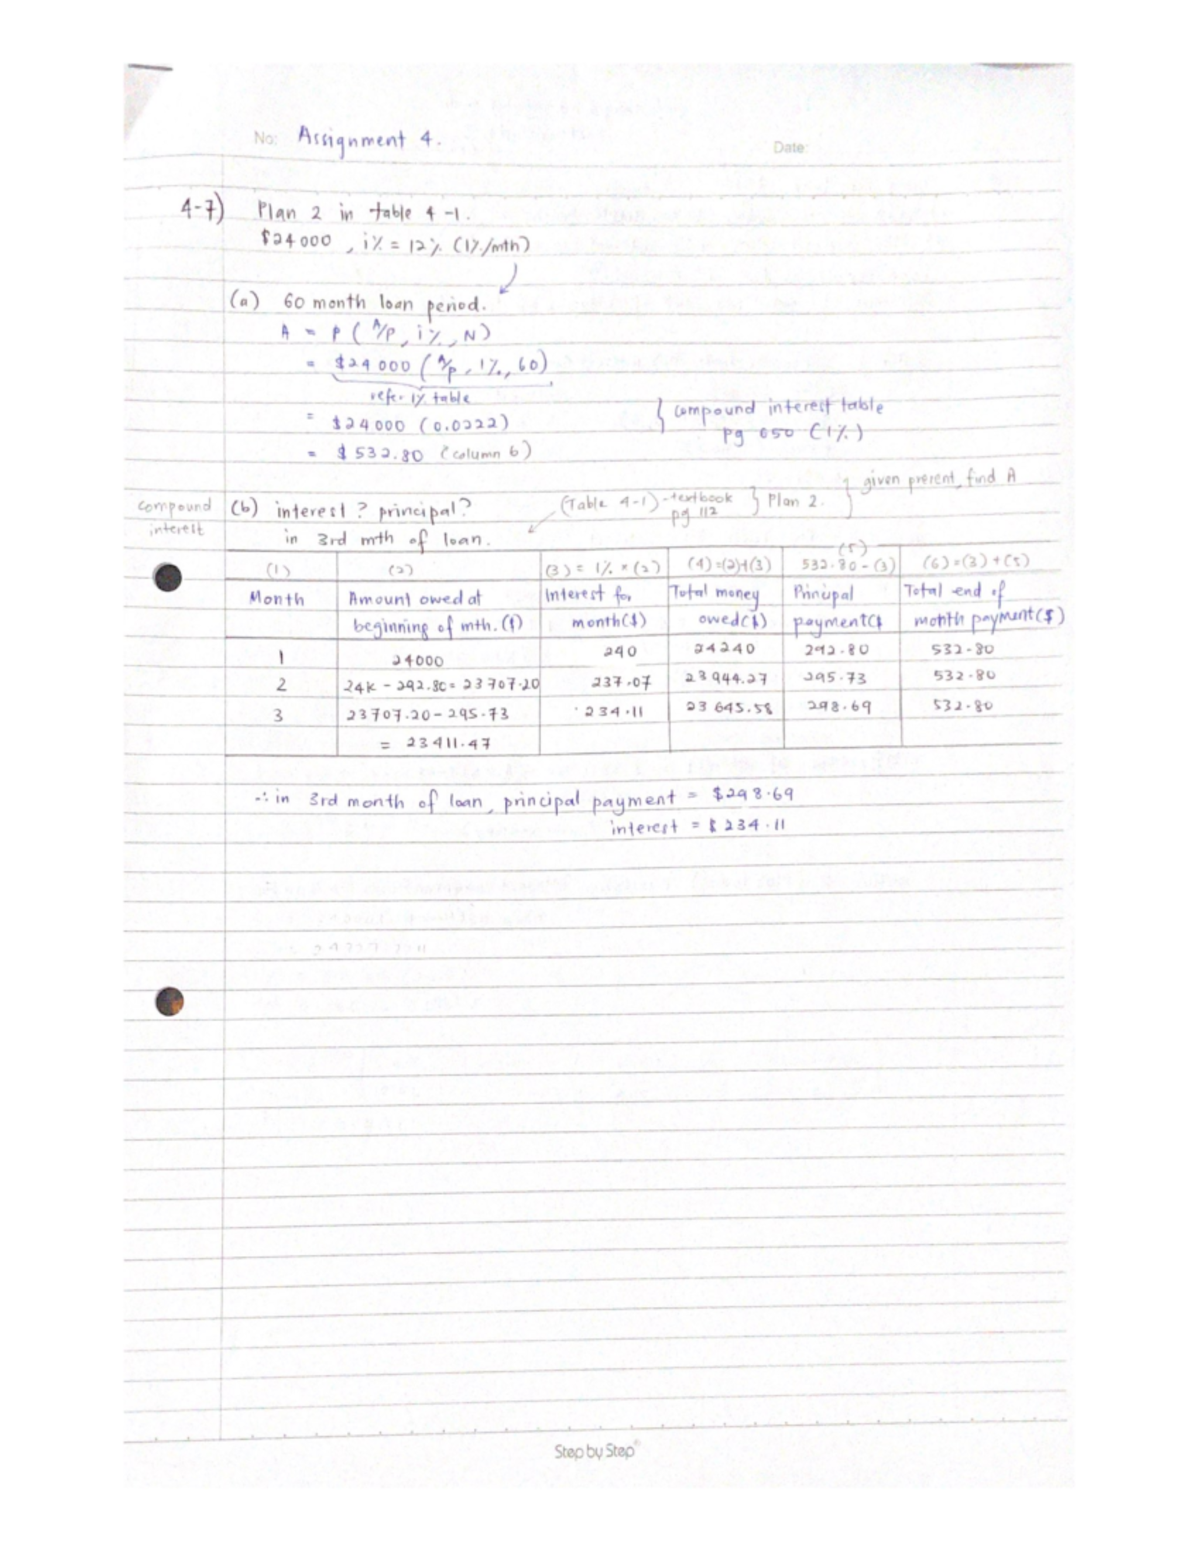 No: Assignment 4.
Date:
4-7) Plan 2 in table 4-1.
$24000, i% = 12% (1%/mth)
(a) 60 month loan period.
A = P (A/P, i%, N)
= $24000 (A/P, 1%, 60)
refer 1% table
= $24000 (0.0222)
= $532.80 (column 6)
} compound interest table
pg 650 (1%)
given present, find A
compound interest
(b) interest? principal?
in 3rd mth of loan.
(Table 4-1) - textbook pg 112 } Plan 2.
(1) (2) (3) = 1% × (2) (4) = (2)+(3) (5) 532.80 - (3) (6) = (3) + (5)
Month Amount owed at beginning of mth. ($) Interest for month($) Total money owed($) Principal payment($ Total end of month payment($)
1 24000 240 24240 292.80 532.80
2 24K - 292.80 = 23707.20 237.07 23944.27 295.73 532.80
3 23707.20 - 295.73 234.11 23645.58 298.69 532.80
= 23411.47
∴ in 3rd month of loan, principal payment = $298.69
interest = $234.11
Step by Step